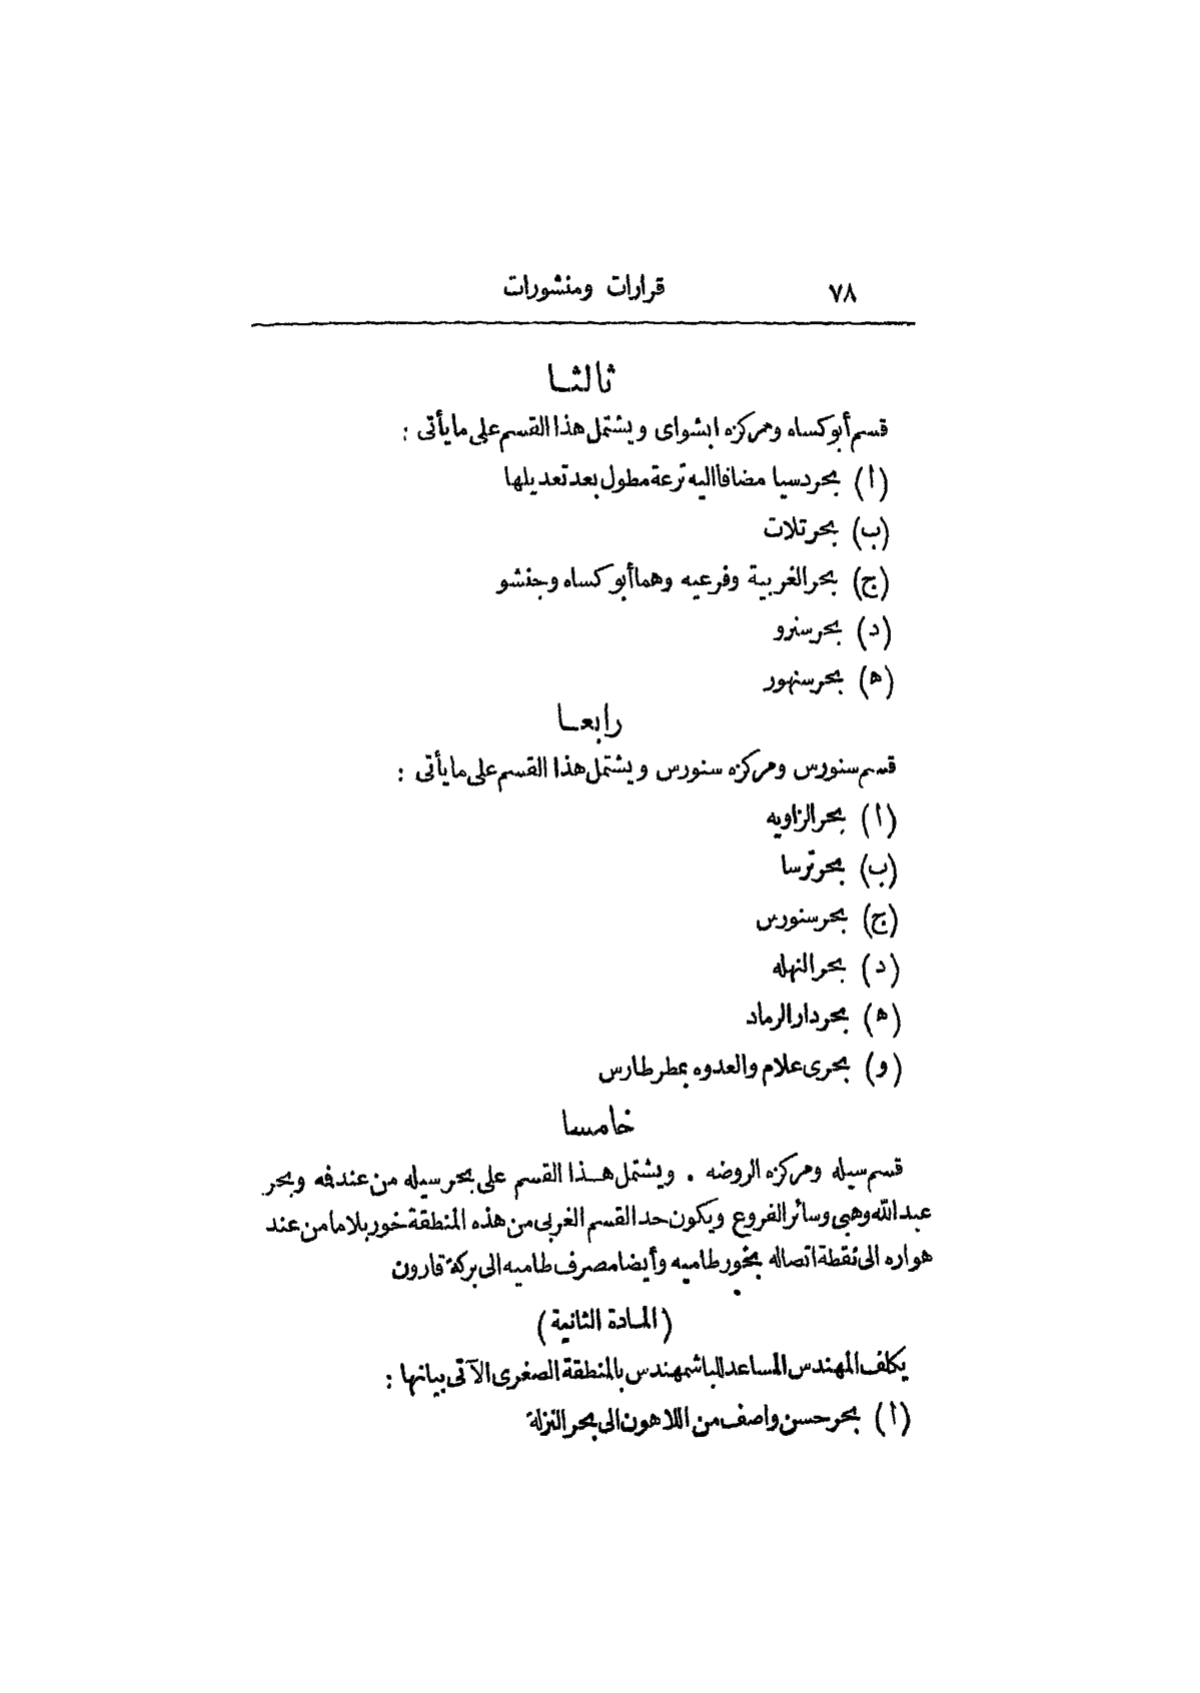 ٧٨ قرارات ومنشورات
ثالثا
قسم أبوكساه ومركزه ابشواى ويشتمل هذا القسم على ما يأتى :
(أ) بحر دسيا مضافا اليه ترعة مطول بعد تعديلها
(ب) بحر تلات
(ج) بحر الغربية وفرعيه وهما أبو كساه وجنشو
(د) بحر سنرو
(ه) بحر سنهور
رابعا
قسم سنورس ومركزه سنورس ويشتمل هذا القسم على ما يأتى :
(أ) بحر الزاويه
(ب) بحر ترسا
(ج) بحر سنورس
(د) بحر النهله
(ه) بحر دار الرماد
(و) بحرى علام والعدوه بمطرطارس
خامسا
قسم سيله ومركزه الروضه . ويشتمل هذا القسم على بحر سيله من عند فه وبحر
عبد الله وهبى وسائر الفروع ويكون حد القسم الغربى من هذه المنطقة خور بلاما من عند
هواره الى نقطة اتصاله بخور طاميه وأيضا مصرف طاميه الى بركة قارون
(المادة الثانية)
يكلف المهندس المساعد للباشمهندس بالمنطقة الصغرى الآتى بيانها :
(أ) بحر حسن واصف من اللاهون الى بحر النزلة